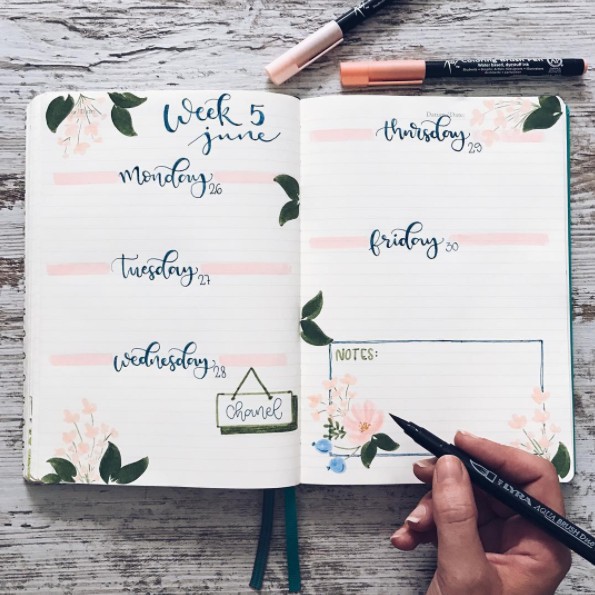 Week 5
june
monday 26
tuesday 27
wednesday 28
Chanel
thursday 29
friday 30
NOTES:
Coloring Brush Pen
LYRA AQUA BRUSH DUO